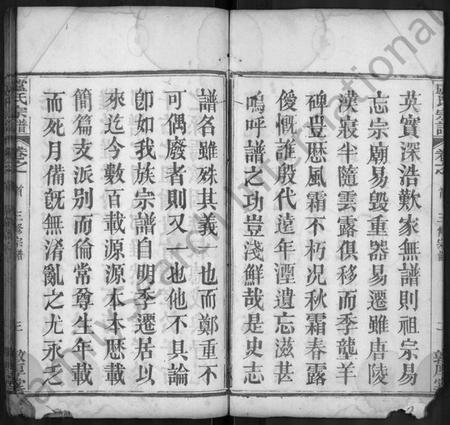 英實深浩歎家無譜則祖宗易
忘宗廟易毀重器易遷雖唐陵
漢寢半隨雲露俱移而季壟羊
碑豊歴風霜不朽况秋霜春露
優慨誰殷代遠年湮遺忘滋甚
嗚呼譜之功豈淺鮮哉是史志
盧氏宗譜
卷之首
三修宗譜
三
敦厚堂
譜名雖殊其義一也而鄭重不
可偶廢者則又一也他不具論
卽如我族宗譜自明季遷居以
來迄今數百載源源本本歴載
簡篇支派別而倫常尊生年載
而死月備旣無淆亂之尤永之